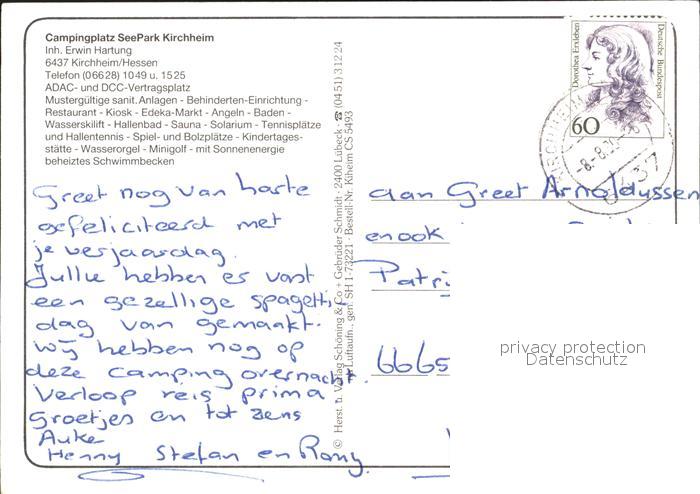 Campingplatz SeePark Kirchheim
Inh. Erwin Hartung
6437 Kirchheim/Hessen
Telefon (06628) 1049 u. 1525
ADAC- und DCC-Vertragsplatz
Mustergültige sanit. Anlagen - Behinderten-Einrichtung -
Restaurant - Kiosk - Edeka-Markt - Angeln - Baden -
Wasserskilift - Hallenbad - Sauna - Solarium - Tennisplätze
und Hallentennis - Spiel- und Bolzplätze - Kindertages-
stätte - Wasserorgel - Minigolf - mit Sonnenenergie
beheiztes Schwimmbecken
Greet nog van harte
gefeliciteerd met
je verjaardag.
Jullie hebben er vast
een gezellige spagetti
dag van gemaakt.
Wij hebben nog op
deze camping overnacht.
Verloop reis prima
Groetjes en tot ziens
Auke
Henny Stefan en Romy
© Herst. u. Verlag Schöning & Co + Gebrüder Schmidt · 2400 Lübeck · ☎ (0451) 31224
Luftaufn. gen. SH 1-73221 · Bestell-Nr. Kiheim CS 5493
Dorothea Erxleben
Deutsche Bundespost
60
-8.-8.
6437
aan Greet Arnoldussen
en ook
Patri
6665
privacy protection
Datenschutz